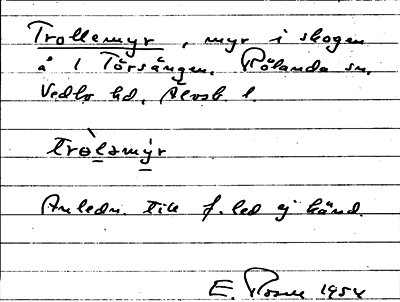 Trollemyr, myr i skogen
å 1 Törsängen. Rölanda sn.
Vedbo hd, Älvsb. l.
tròlamýr
Anledn. till f.led ej känd.
E. Rosn 1954